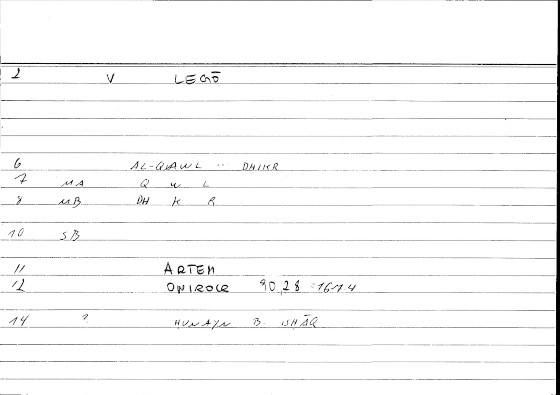 2 V LEGŌ
6 AL-QAWL ... DHIKR
7 MA Q W L
8 MB DH K R
10 SB
11 ARTEM
12 ONIROCR 90,28 : 167 4
14 ? HUNAYN B. ISHĀQ